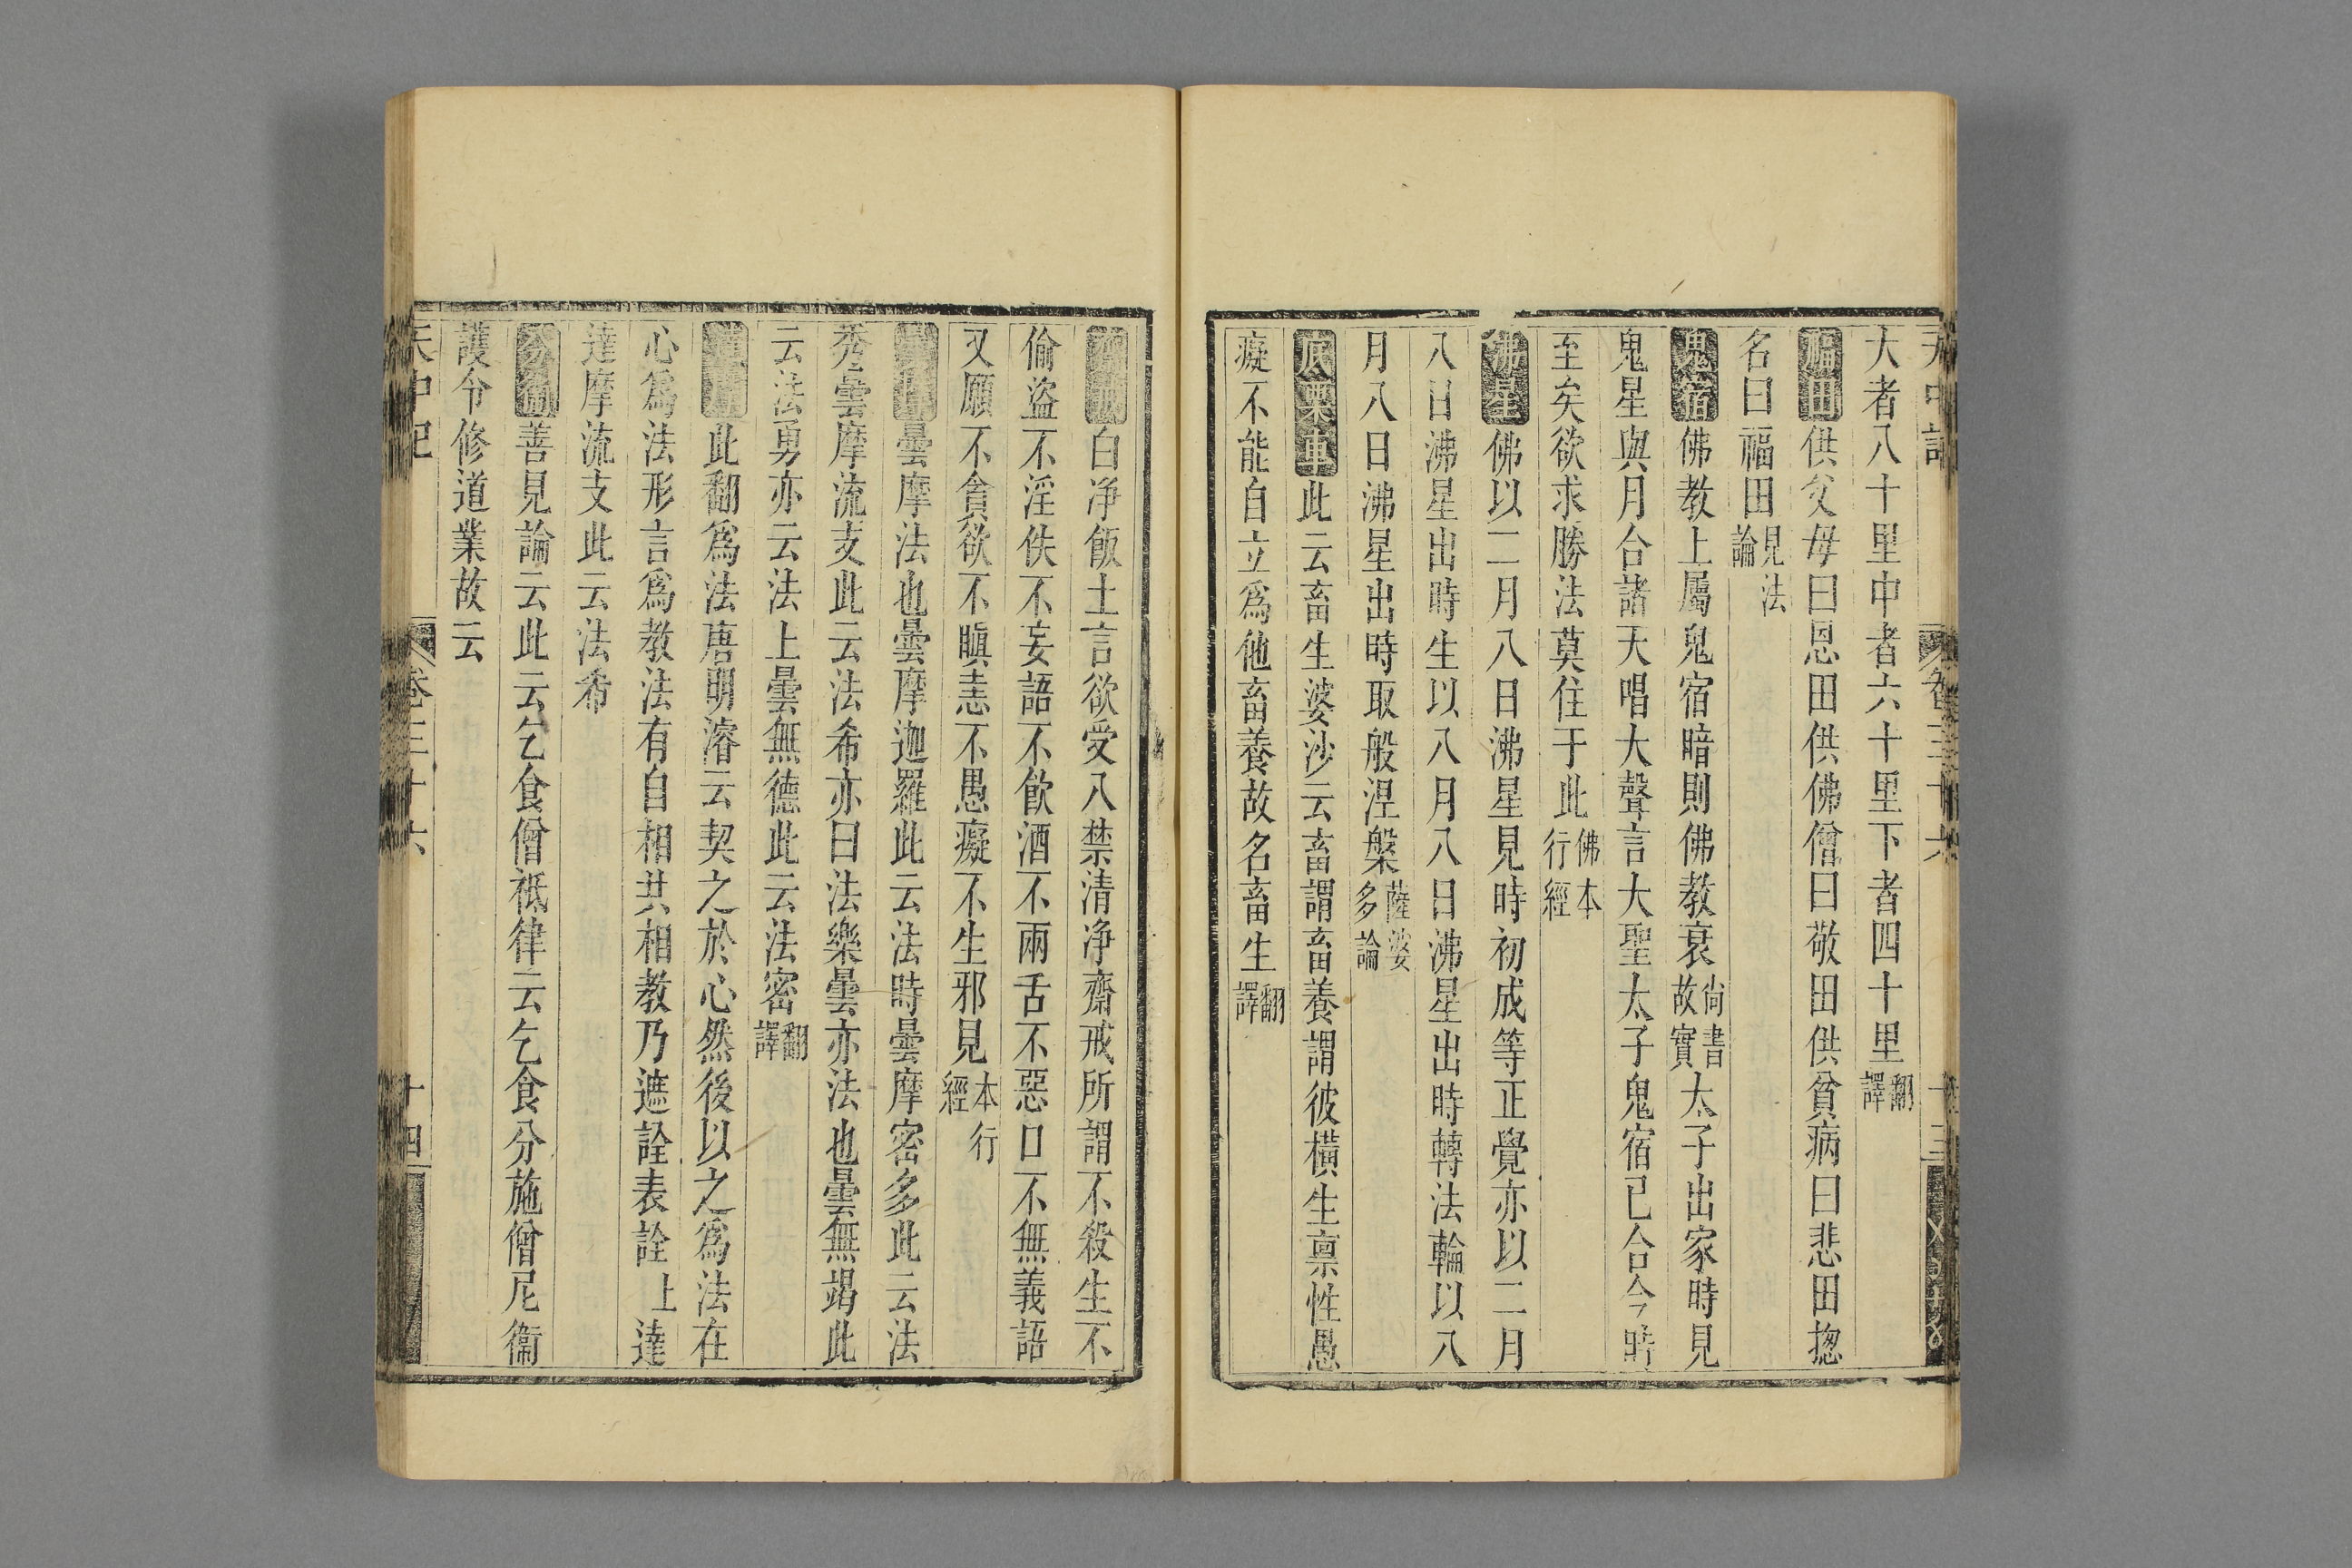 大者八十里中者六十里下者四十里翻譯
福田供父母曰恩田供佛僧曰敬田供貧病曰悲田揔
名曰福田見法論
鬼宿佛教上屬鬼宿暗則佛教衰尚書故實太子出家時見
鬼星與月合諸天唱大聲言大聖太子鬼宿已合今時
至矣欲求勝法莫住于此佛本行經
沸星佛以二月八日沸星見時初成等正覺亦以二月
八日沸星出時生以八月八日沸星出時轉法輪以八
月八日沸星出時取般涅槃薩婆多論
底栗車此云畜生婆沙云畜謂畜養謂彼橫生稟性愚
癡不能自立爲他畜養故名畜生翻譯
白净飯土言欲受八禁清净齋戒所謂不殺生不
偷盜不淫佚不妄語不飮酒不兩舌不惡口不無義語
又願不貪欲不瞋恚不愚癡不生邪見本行經
曇摩法也曇摩迦羅此云法時曇摩密多此云法
秀曇摩流支此云法希亦曰法樂曇亦法也曇無竭此
云法勇亦云法上曇無德此云法密翻譯
此翻爲法唐明濬云契之於心然後以之爲法在
心爲法形言爲教法有自相共相教乃遮詮表詮上達
達摩流支此云法希
分衛善見論云此云乞食僧祗律云乞食分施僧尼衞
護令修道業故云
天中記
卷三十六
十四